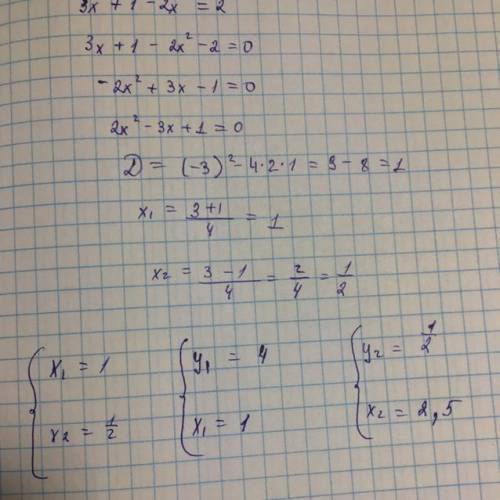 3x + 1 - 2x = 2
3x + 1 - 2x² - 2 = 0
- 2x² + 3x - 1 = 0
2x² - 3x + 1 = 0
D = (-3)² - 4·2·1 = 9 - 8 = 1
x₁ = (3+1)/4 = 1
x₂ = (3-1)/4 = 2/4 = 1/2
{ x₁ = 1 { y₁ = 4 { y₂ = 1/2
x₂ = 1/2 x₁ = 1 x₂ = 2,5